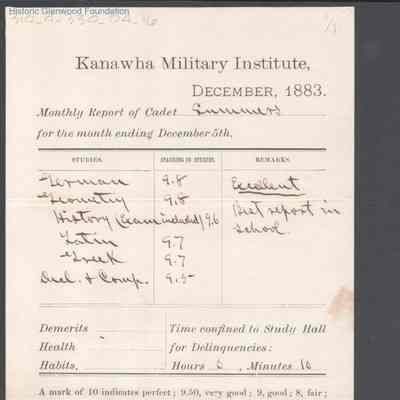 Historic Glenwood Foundation
Kanawha Military Institute,
DECEMBER, 1883.
Monthly Report of Cadet Summers
for the month ending December 5th.
STUDIES. STANDING IN STUDIES. REMARKS.
German 9.8 Excellent
Geometry 9.8 Best report in
History (Exam included) 9.6 school.
Latin 9.7
Greek 9.7
Decl. & Comp. 9.5
Demerits Time confined to Study Hall
Health for Delinquencies:
Habits, Hours 5, Minutes 10
A mark of 10 indicates perfect; 9.50, very good; 9, good; 8, fair;